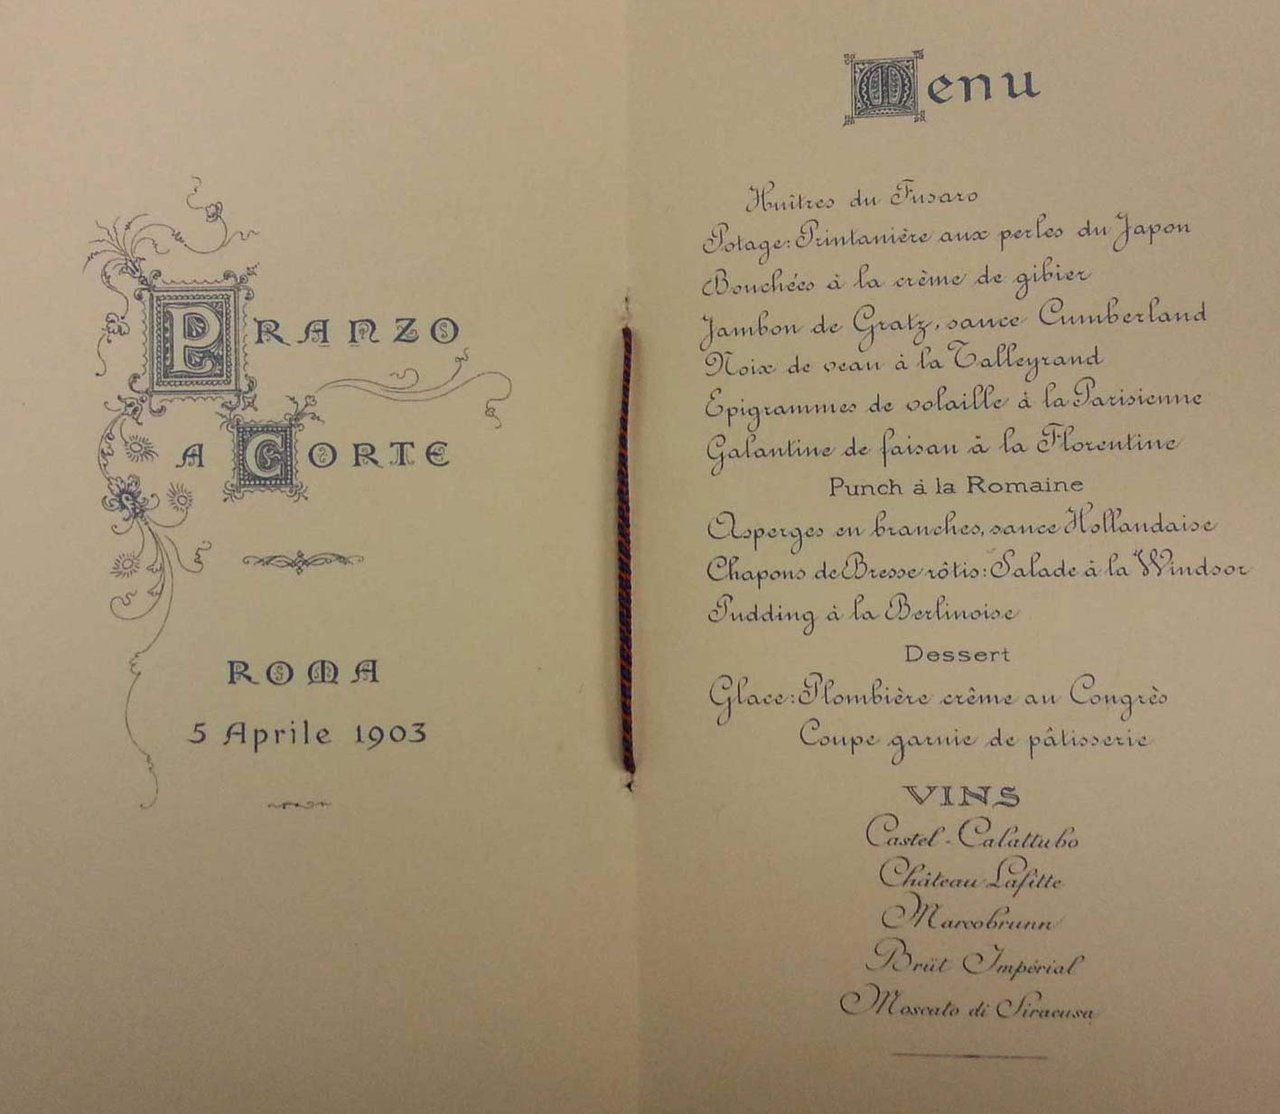 PRANZO
A CORTE
ROMA
5 Aprile 1903
Menu
Huîtres du Fusaro
Potage: Printanière aux perles du Japon
Bouchées à la crème de gibier
Jambon de Gratz, sauce Cumberland
Noix de veau à la Talleyrand
Epigrammes de volaille à la Parisienne
Galantine de faisan à la Florentine
Punch à la Romaine
Asperges en branches, sauce Hollandaise
Chapons de Bresse rôtis: Salade à la Windsor
Pudding à la Berlinoise
Dessert
Glace: Plombière crême au Congrès
Coupe garnie de pâtisserie
VINS
Castel-Calattubo
Château Lafitte
Marcobrunn
Brüt Impérial
Moscato di Siracusa